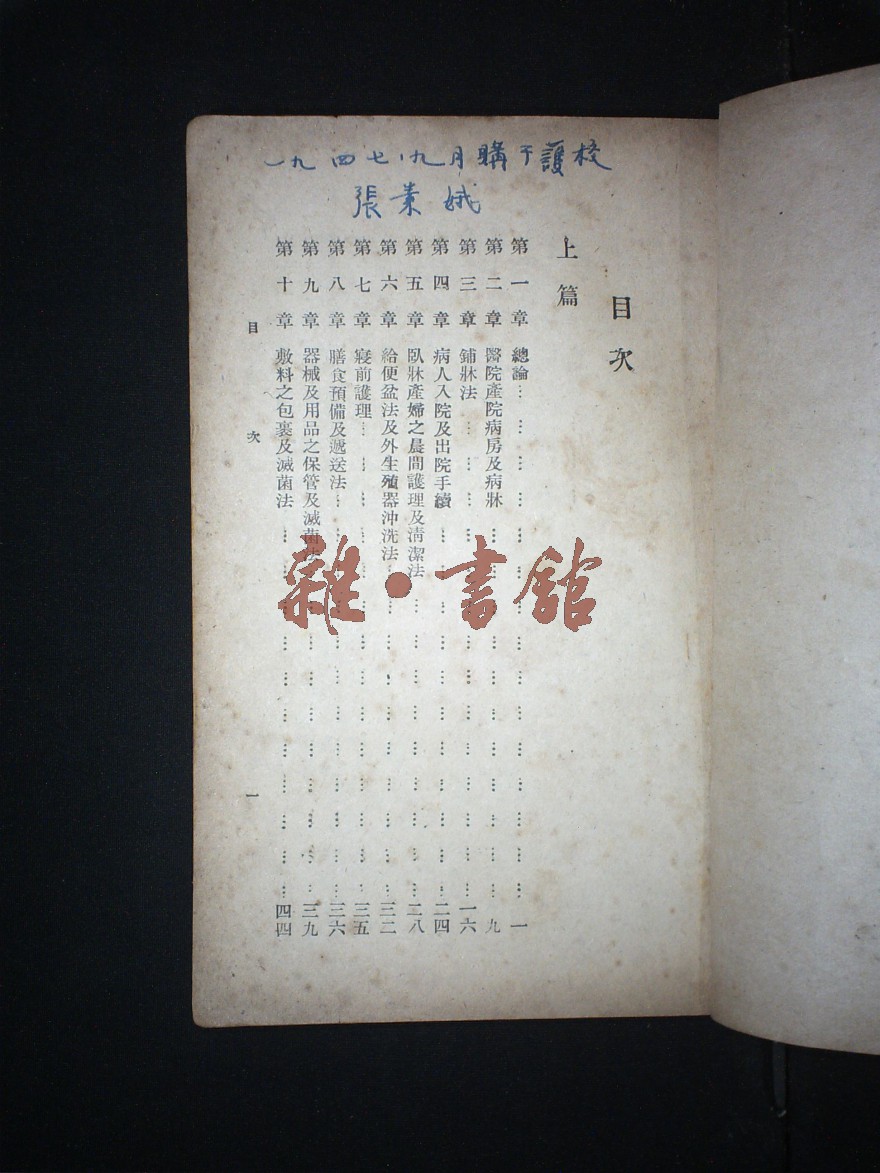 一九四七,九月購于護校
張素娥
目次
上篇
第一章 總論……………………………一
第二章 醫院產院病房及病牀……………………………九
第三章 鋪牀法……………………………一六
第四章 病人入院及出院手續……………………………二四
第五章 臥牀產婦之晨間護理及淸潔法……………………………二八
第六章 給便盆法及外生殖器沖洗法……………………………三二
第七章 寢前護理……………………………三五
第八章 膳食預備及遞送法……………………………三六
第九章 器械及用品之保管及滅菌法……………………………三九
第十章 敷料之包裹及滅菌法……………………………四四
目次 一
雜·書館